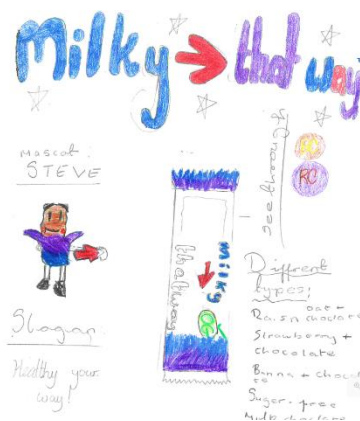 Milky that way
Mascot:
STEVE
Slogan
Healthy your
way!
milky
that way
see through
RC
Diffrent
types:
oat +
Raisin chocolate
Strawberry +
chocolate
Banna + chocol
Sugar free
Milk chocolate